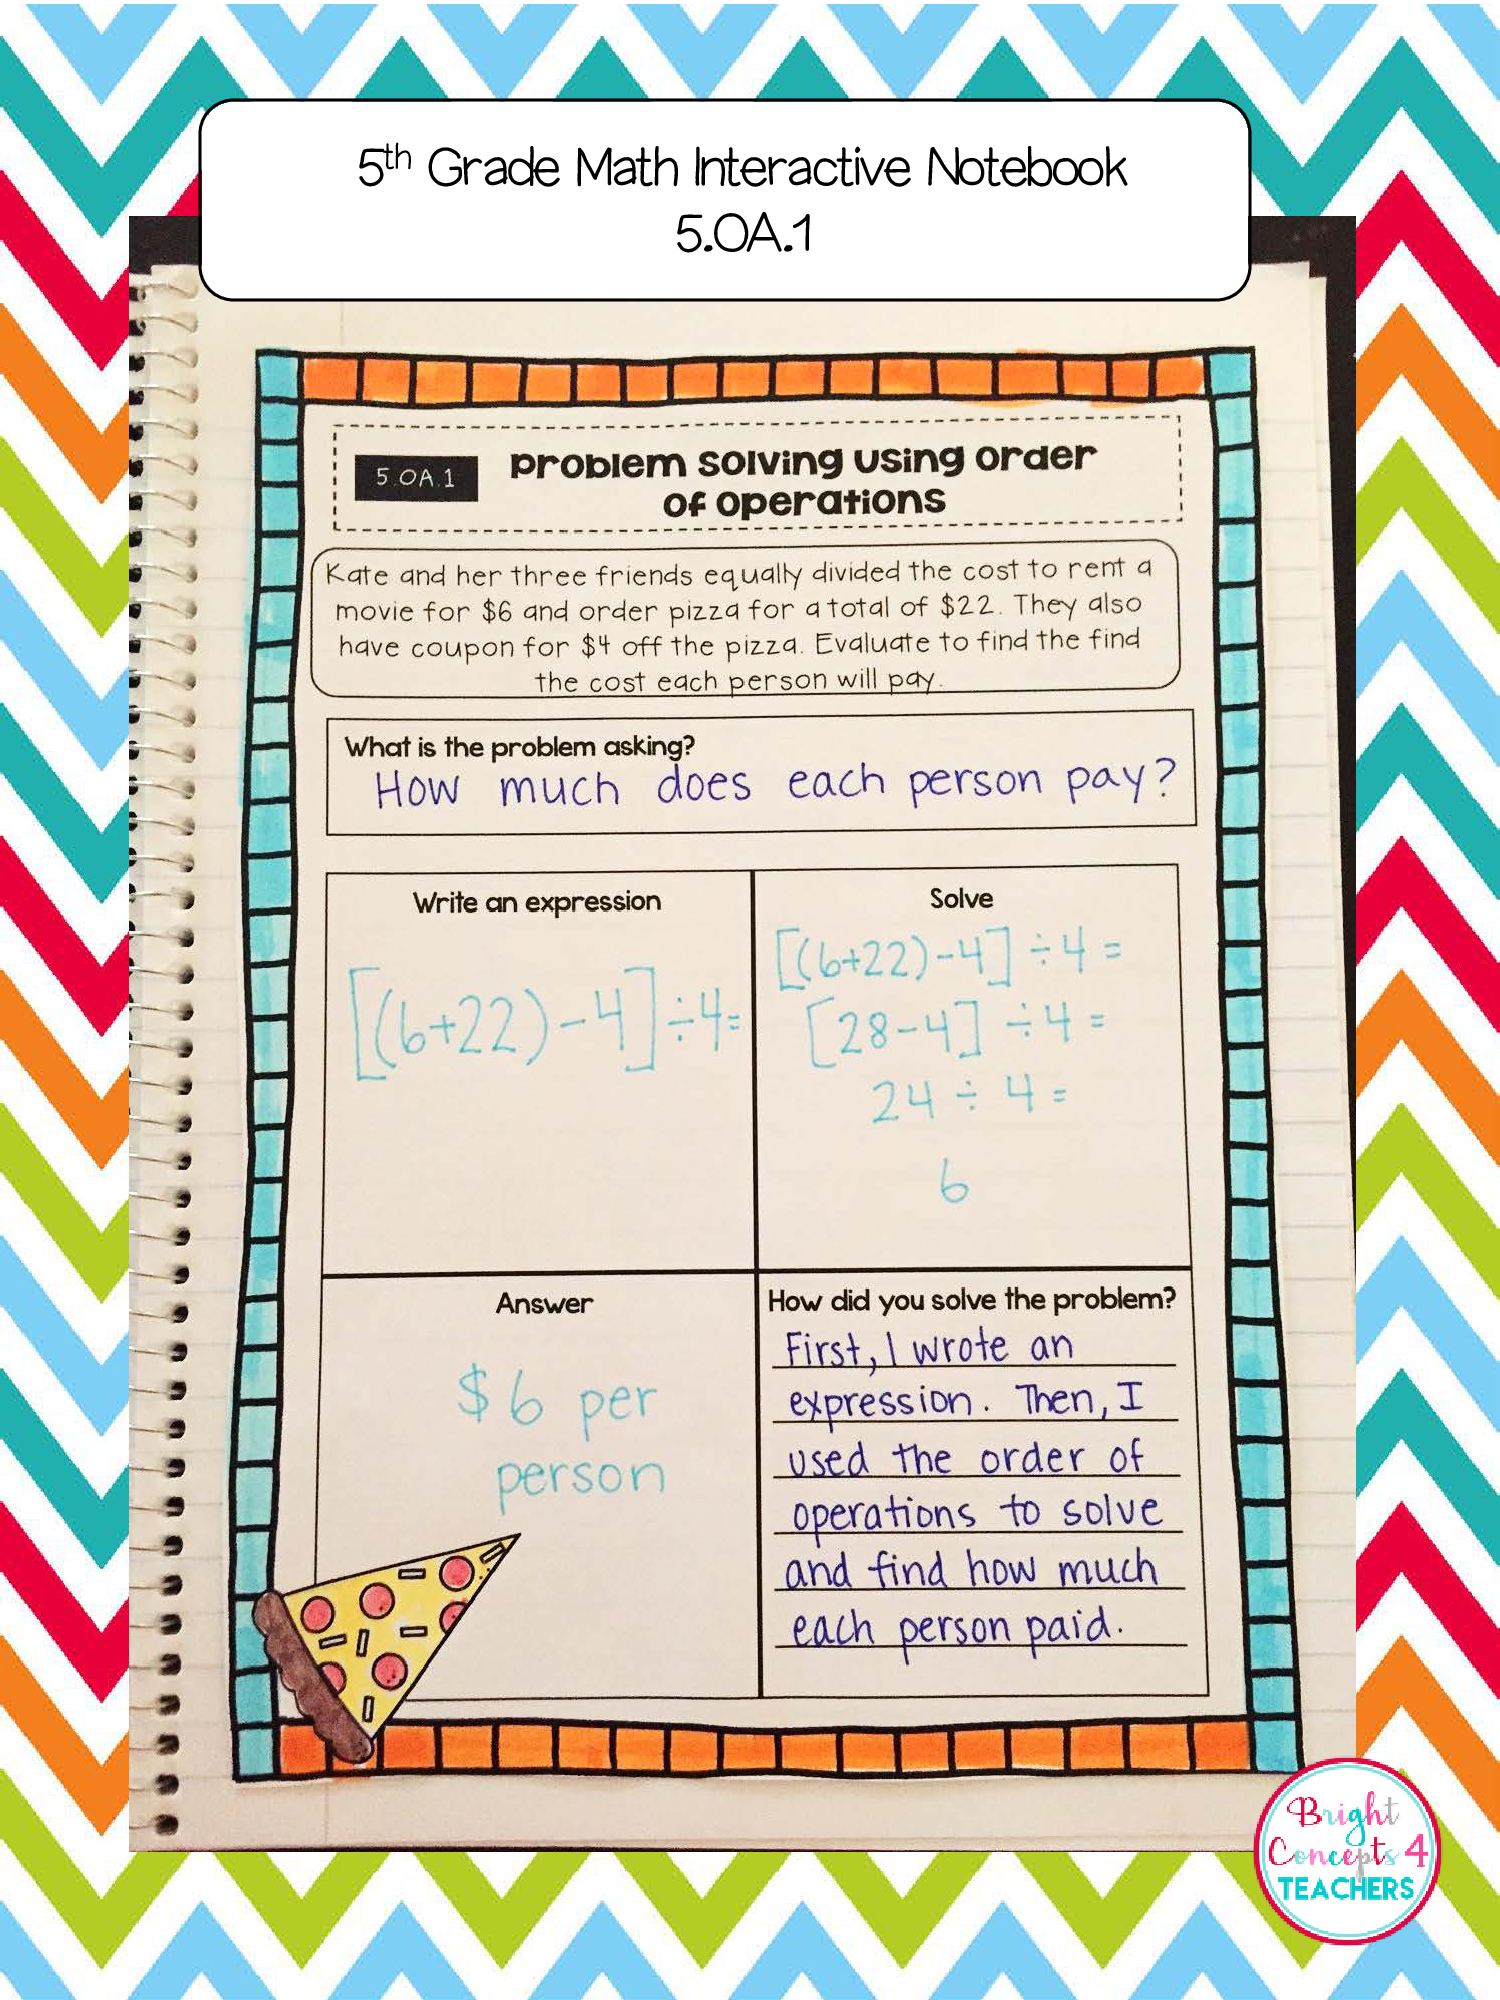 5th Grade Math Interactive Notebook
5.OA.1
5.OA.1
Problem Solving Using Order
of Operations
Kate and her three friends equally divided the cost to rent a
movie for $6 and order pizza for a total of $22. They also
have coupon for $4 off the pizza. Evaluate to find the find
the cost each person will pay.
What is the problem asking?
How much does each person pay?
Write an expression
[(6+22)-4]÷4=
Solve
[(6+22)-4]÷4=
[28-4]÷4=
24÷4=
6
Answer
$6 per
person
How did you solve the problem?
First, I wrote an
expression. Then, I
used the order of
operations to solve
and find how much
each person paid.
Bright
Concepts 4
TEACHERS